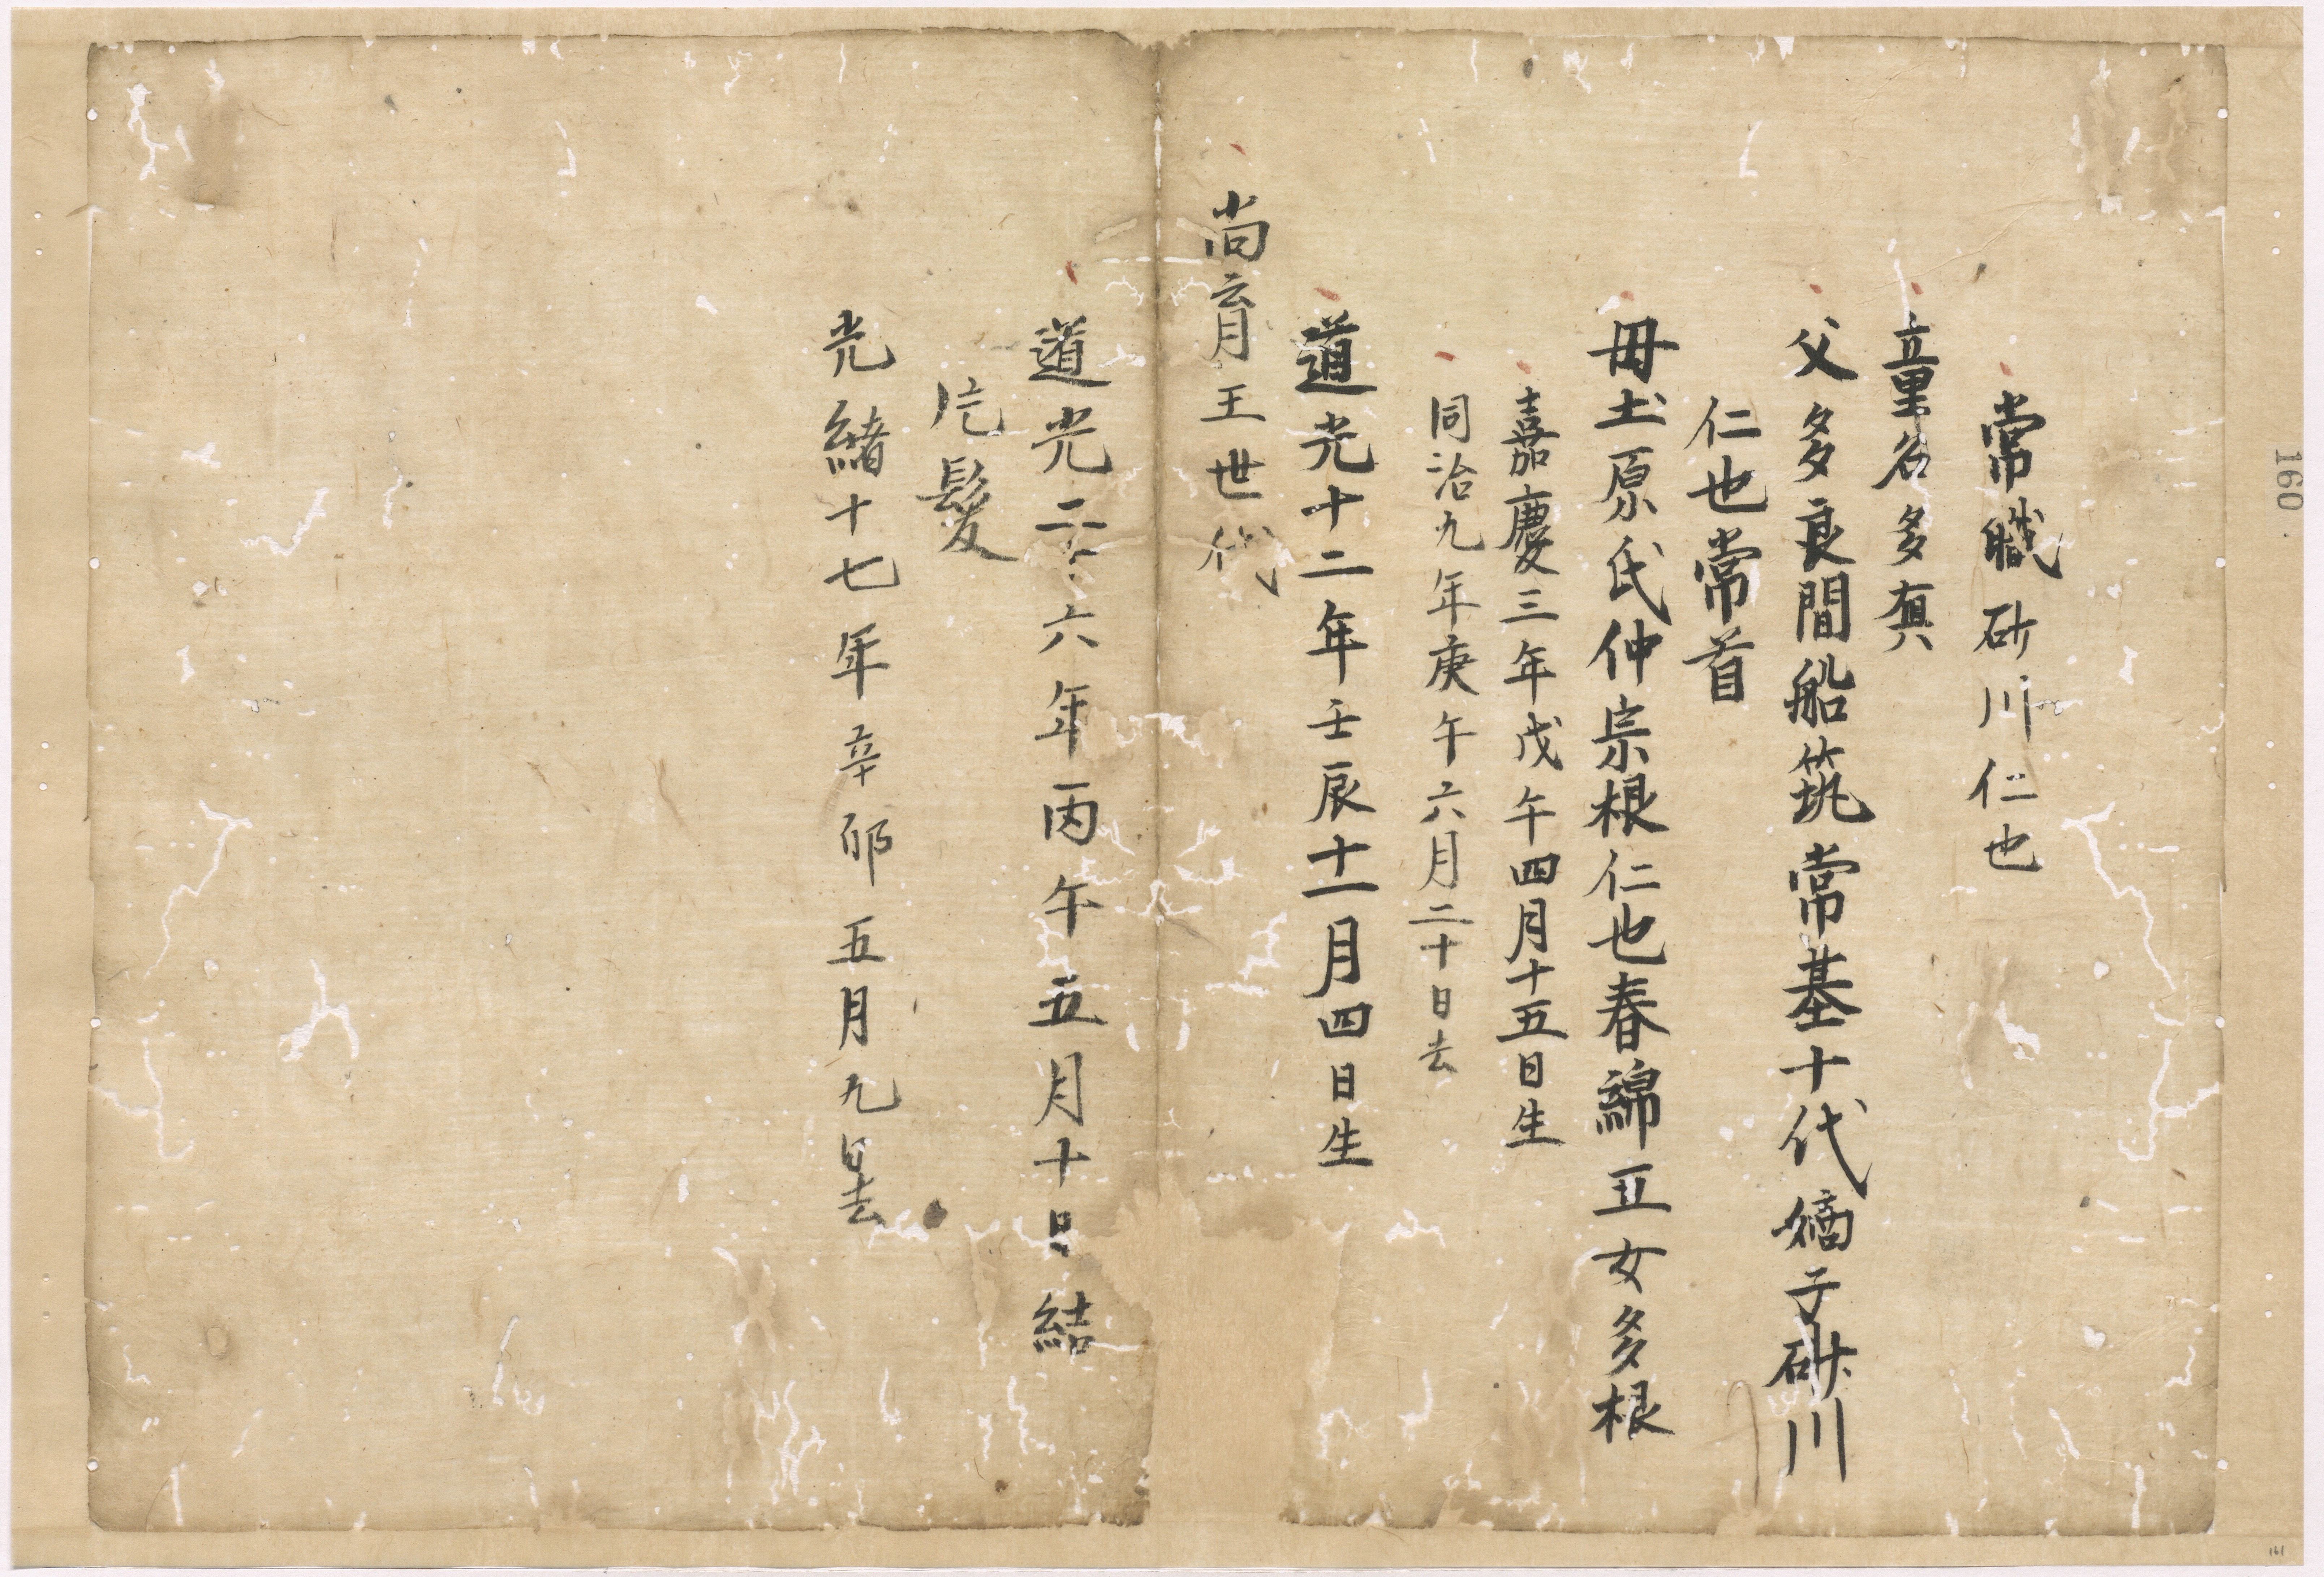 常職砂川仁也
童名多真
父多良間船筑常基十代嫡子砂川
仁也常首
母土原氏仲宗根仁也春綿五女多根
嘉慶三年戊午四月十五日生
同治九年庚午六月二十日去
道光十二年壬辰十一月四日生
尚育王世代
道光二十六年丙午五月十日結
片髪
光緒十七年辛卯五月九日去
160
161